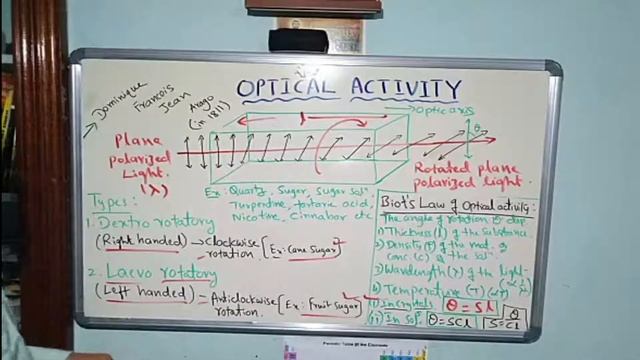 OPTICAL ACTIVITY
Dominique
Francois
Jean
Arago
(in 1811)
l
Optic axis
θ
Plane
polarized
Light
(λ)
Rotated plane
polarized light.
Ex: Quartz, Sugar, Sugar sol.
Turpentine, tartaric acid,
Nicotine, Cinnabar etc
Types:
1. Dextro rotatory
(Right handed) → clockwise
rotation [Ex: Cane Sugar]
2. Laevo rotatory
(Left handed) = Anticlockwise
rotation. [Ex: Fruit Sugar]
Biot's Law of Optical activity:
The angle of rotation θ dep
1) Thickness (l) of the Substance.
2) Density of the mat. or
conc. (c) of the sol.
3) Wavelength (λ) of the light
4) Temperature (T)
(i) In Crystals θ = Sl
(ii) In sol. θ = SCl S = θ/Cl
Periodic Table of the Elements